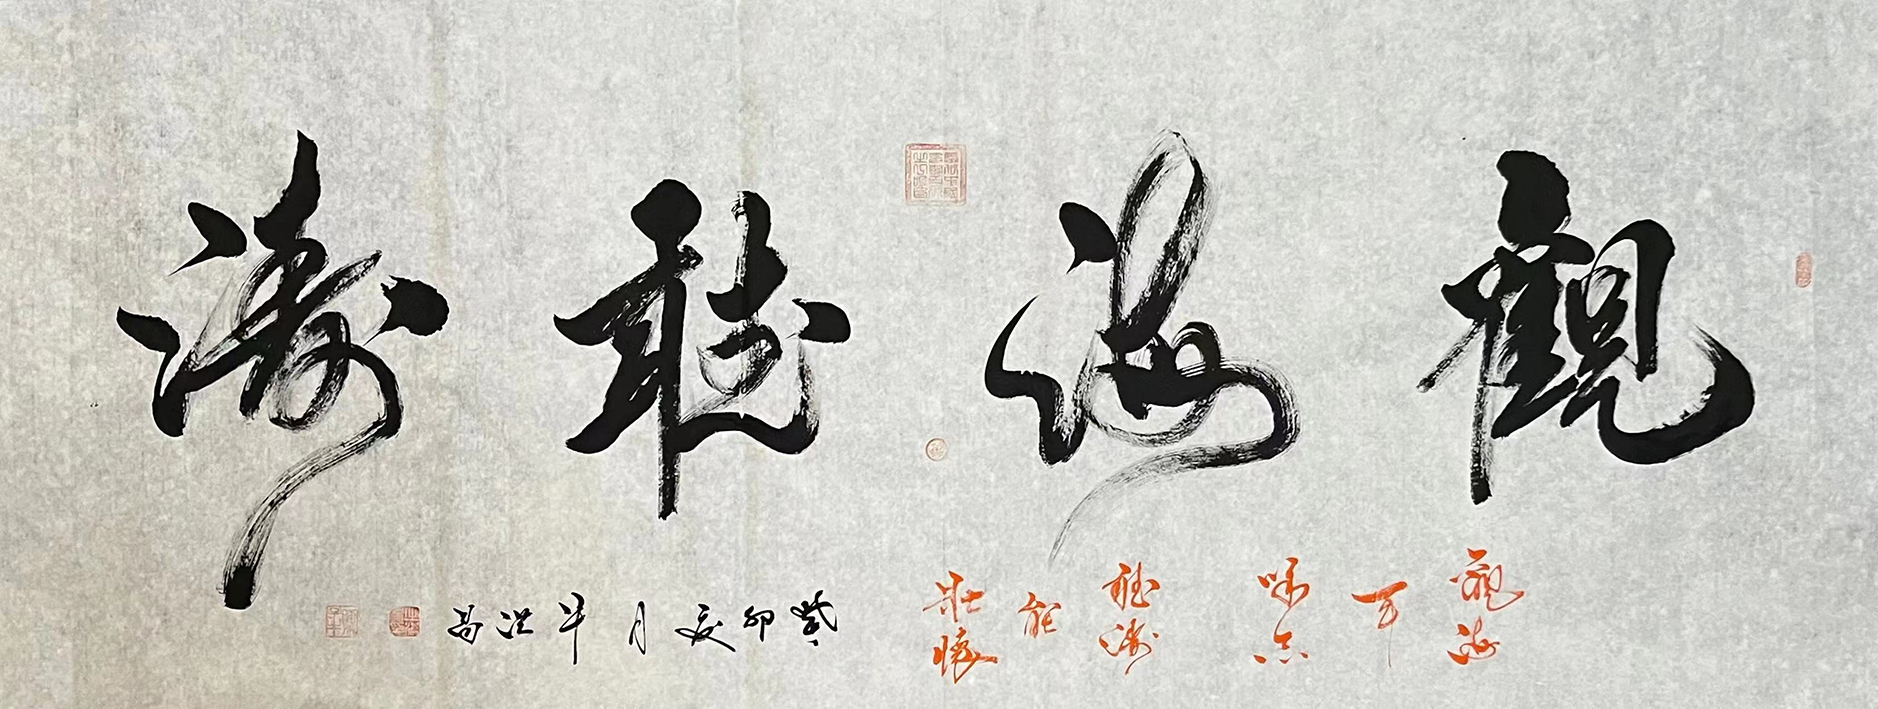 觀海聽濤
觀海
可
聽濤
能
壯懷
癸卯夏月牛洪昌